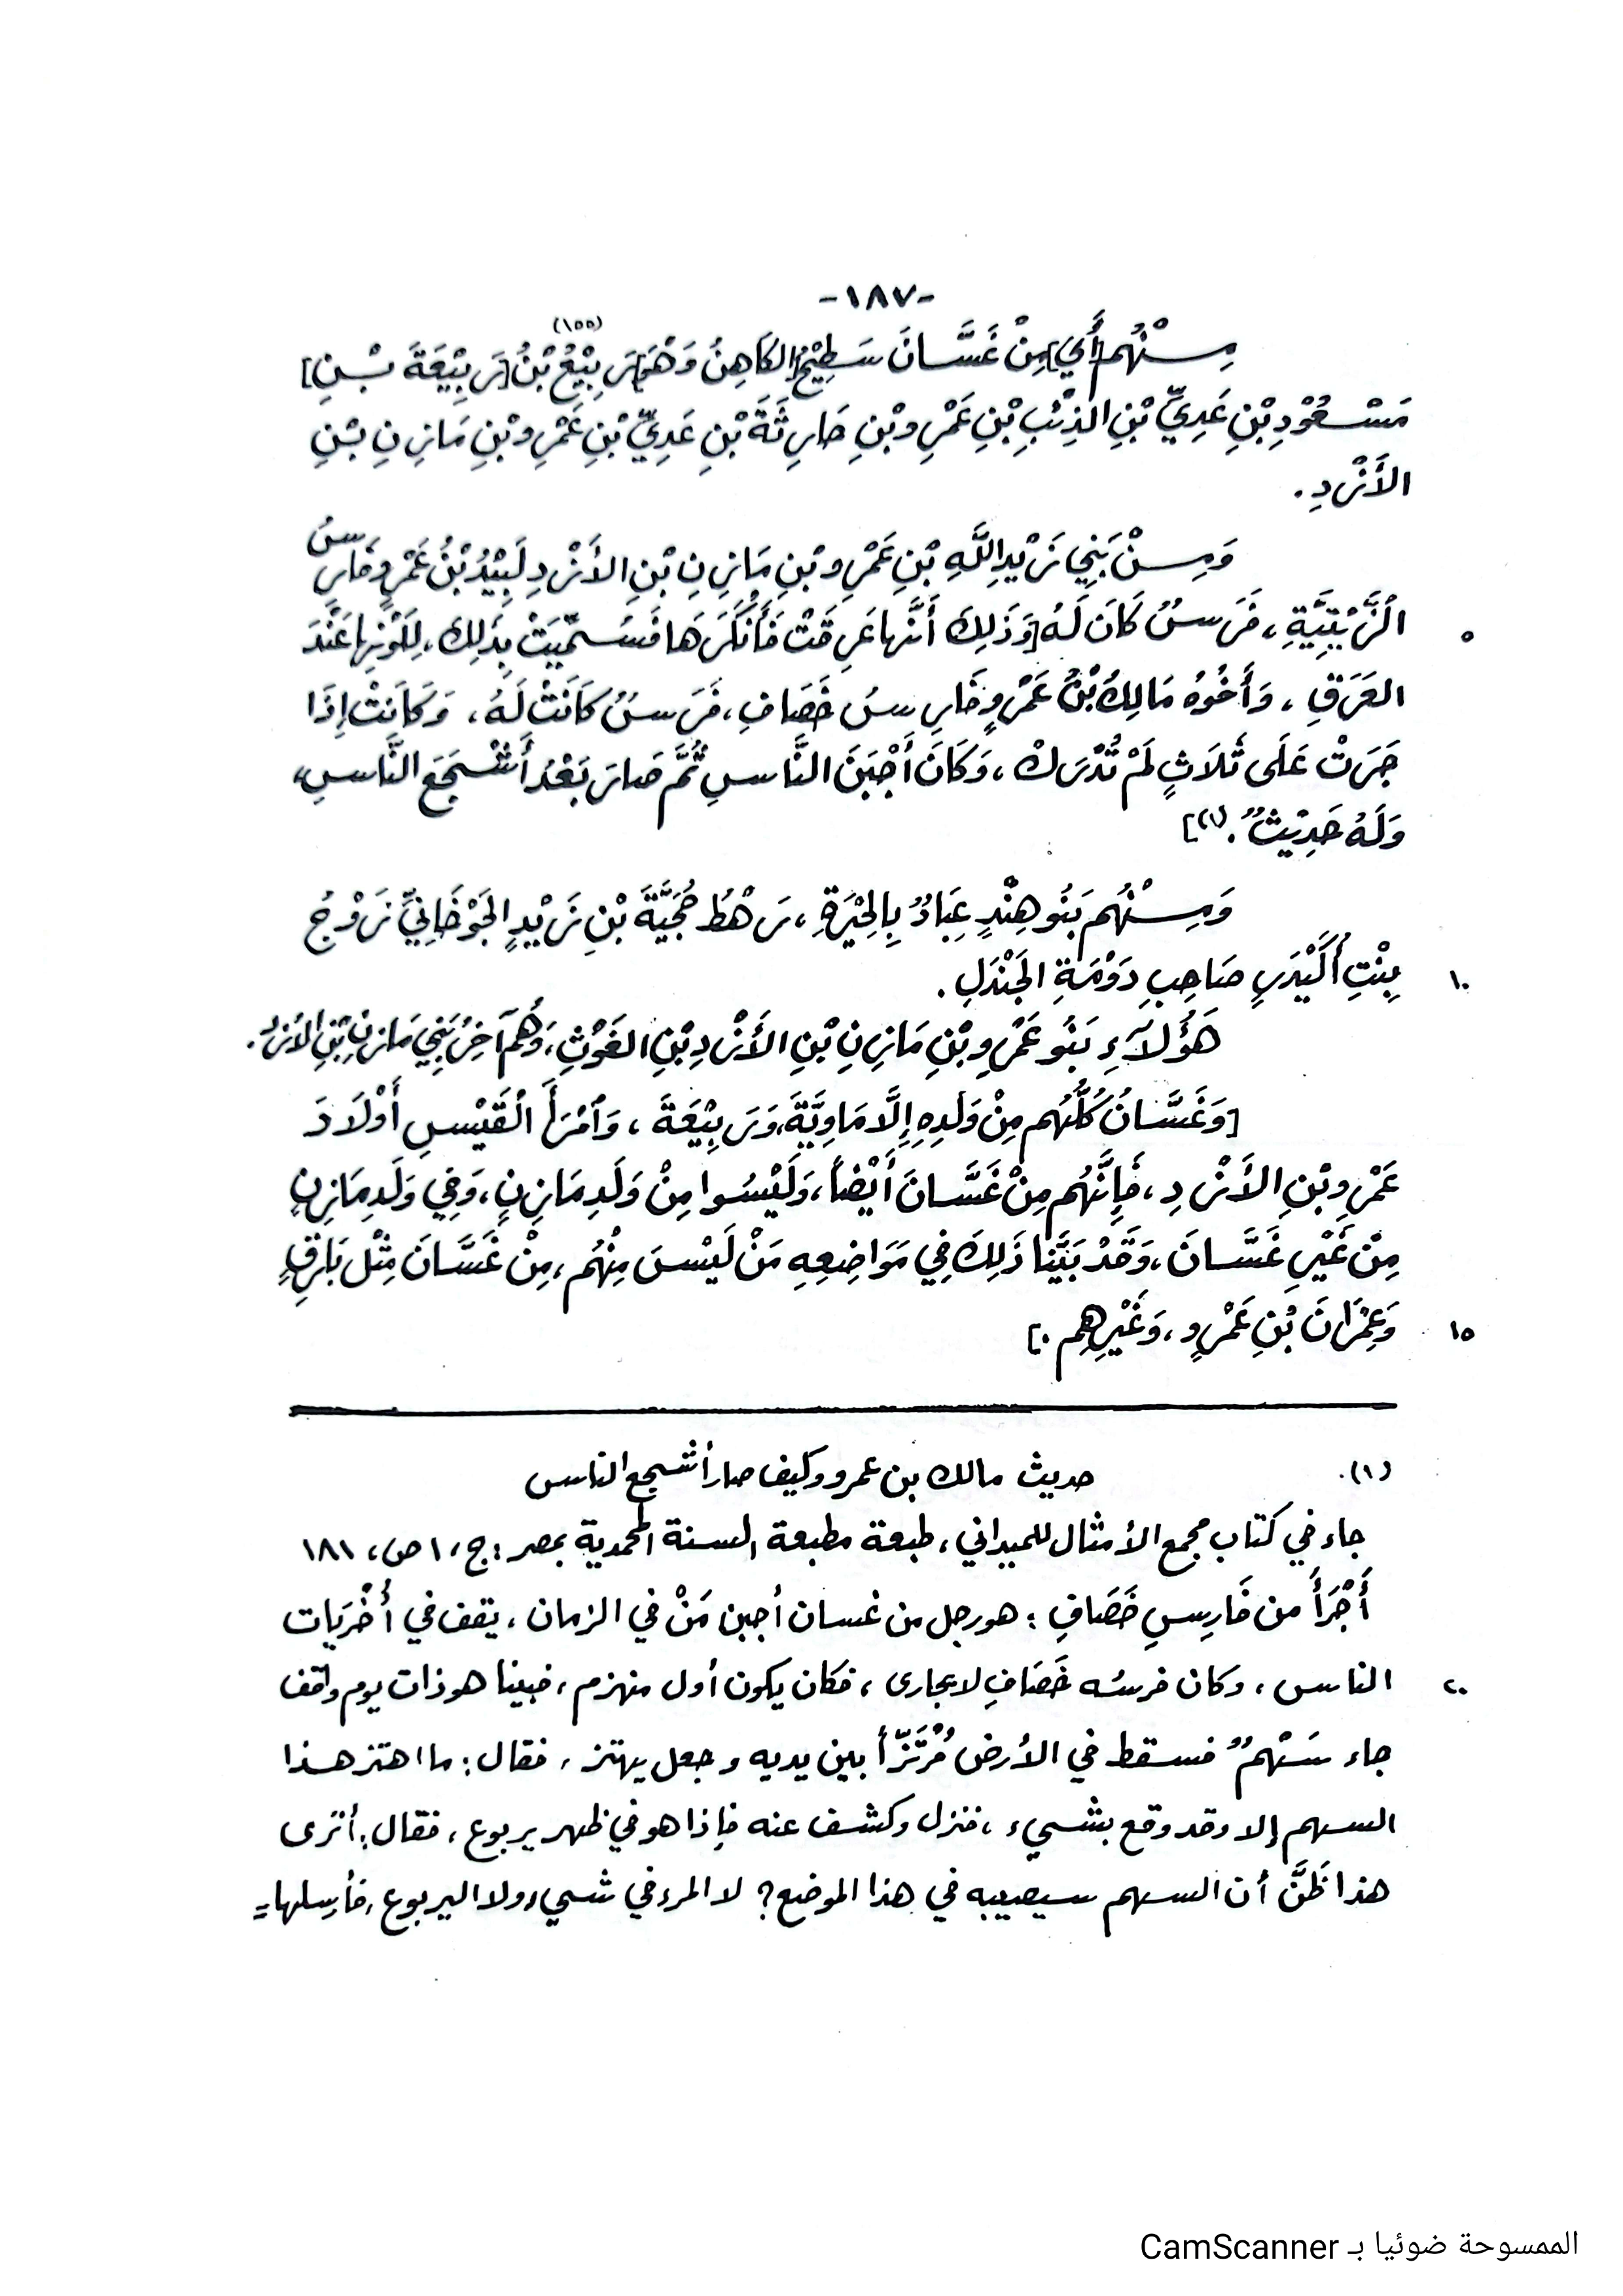 -١٨٧-
مِنْهُم [أَي] مِنْ غَسَّانَ سَطِيْحُ [الكَاهِنُ وَهْوَ] رَبِيْعُ بْنُ (١٥٥) [رَبِيْعَةَ بْنِ]
مَسْعُوْدِ بْنِ عَدِيِّ بْنِ الذِئْبِ بْنِ عَمْرِو بْنِ حَارِثَةَ بْنِ عَدِيِّ بْنِ عَمْرِو بْنِ مَازِنِ بْنِ
الأَزْدِ.
وَمِنْ بَنِي زَيْدِ اللَّهِ بْنِ عَمْرِو بْنِ مَازِنِ بْنِ الأَزْدِ لَبِيْدُ بْنُ عَمْرٍو فَارِسُ
الزَّيْتِيَّةِ، فَرَسٌ كَانَ لَهُ [وَذَلِكَ أَنَّها عَرِقَتْ فَأَنْكَرَهَا فَسُمِّيَتْ بِذَلِكَ، لِلَوْنِها عَنْدَ
٥
العَرَقِ، وَأَخُوْهُ مَالِكُ بْنُ عَمْرٍو فَارِسُ خَصَافِ، فَرَسٌ كَانَتْ لَهُ، وَكَانَتْ إِذَا
جَرَتْ عَلَى ثَلَاثٍ لَمْ تُدْرَكْ، وَكَانَ أَجْبَنَ النَّاسِ ثُمَّ صَارَ بَعْدُ أَشْجَعَ النَّاسِ،
وَلَهُ حَدِيْثٌ. (١)]
وَمِنْهُم بَنُو هِنْدٍ عِبَادٌ بِالحِيْرَةِ، رَهْطُ حُجَيَّةَ بْنِ زَيْدٍ الجَوْخَانِيِّ زَوْجُ
بِنْتِ أُكَيْدَرٍ صَاحِبِ دَوْمَةِ الجَنْدَلِ.
١٠
هَؤُلَآءِ بَنُو عَمْرِو بْنِ مَازِنِ بْنِ الأَزْدِ بْنِ الغَوْثِ، وَهُم آخِرُ بَنِي مَازِنِ بْنِ الأَزْدِ.
[وَغَسَّانُ كُلُّهُم مِنْ وَلَدِهِ إِلَّا مَاوِيَّةَ، وَرَبِيْعَةَ، وَٱمْرَأَ ٱلْقَيْسِ أَوْلَادَ
عَمْرِو بْنِ الأَزْدِ، فَإِنَّهُم مِنْ غَسَّانَ أَيْضاً، وَلَيْسُوا مِنْ وَلَدِ مَازِنٍ، وَفِي وَلَدِ مَازِنٍ
مِنْ غَيْرِ غَسَّانَ، وَقَدْ بَيَّنَا ذَلِكَ فِي مَوَاضِعِهِ مَنْ لَيْسَ مِنْهُم، مِنْ غَسَّانَ مِثْل بَارِقٍ
وَعِمْرَانَ بْنِ عَمْرٍو، وَغَيْرِهِم.]
١٥
(١). حديث مالك بن عمرو وكيف صار أشجع الناس
جاء في كتاب مجمع الأمثال للميداني، طبعة مطبعة السنة المحمدية بمصر: ج، ١ ص، ١٨١
أَجْرَأُ من فَارِسِ خَصَافِ: هو رجل من غسان أجبن مَنْ في الزمان، يقف في أُخْرَيات
الناس، وكان فرسُه خَصَافِ لا يجارى، فكان يكون أول منهزم، فبينا هو ذات يوم واقف
٢٠
جاء سَهْمٌ فسقط في الأرض مُرْتَزّاً بين يديه وجعل يهتز، فقال: ما اهتز هذا
السهم إلا وقد وقع بشيء، فنزل وكشف عنه فإذا هو في ظهر يربوع، فقال: أترى
هذا ظَنَّ أن السهم سيصيبه في هذا الموضع؟ لا المرء في شيء ولا اليربوع، فأرسلها =
الممسوحة ضوئيا بـ CamScanner